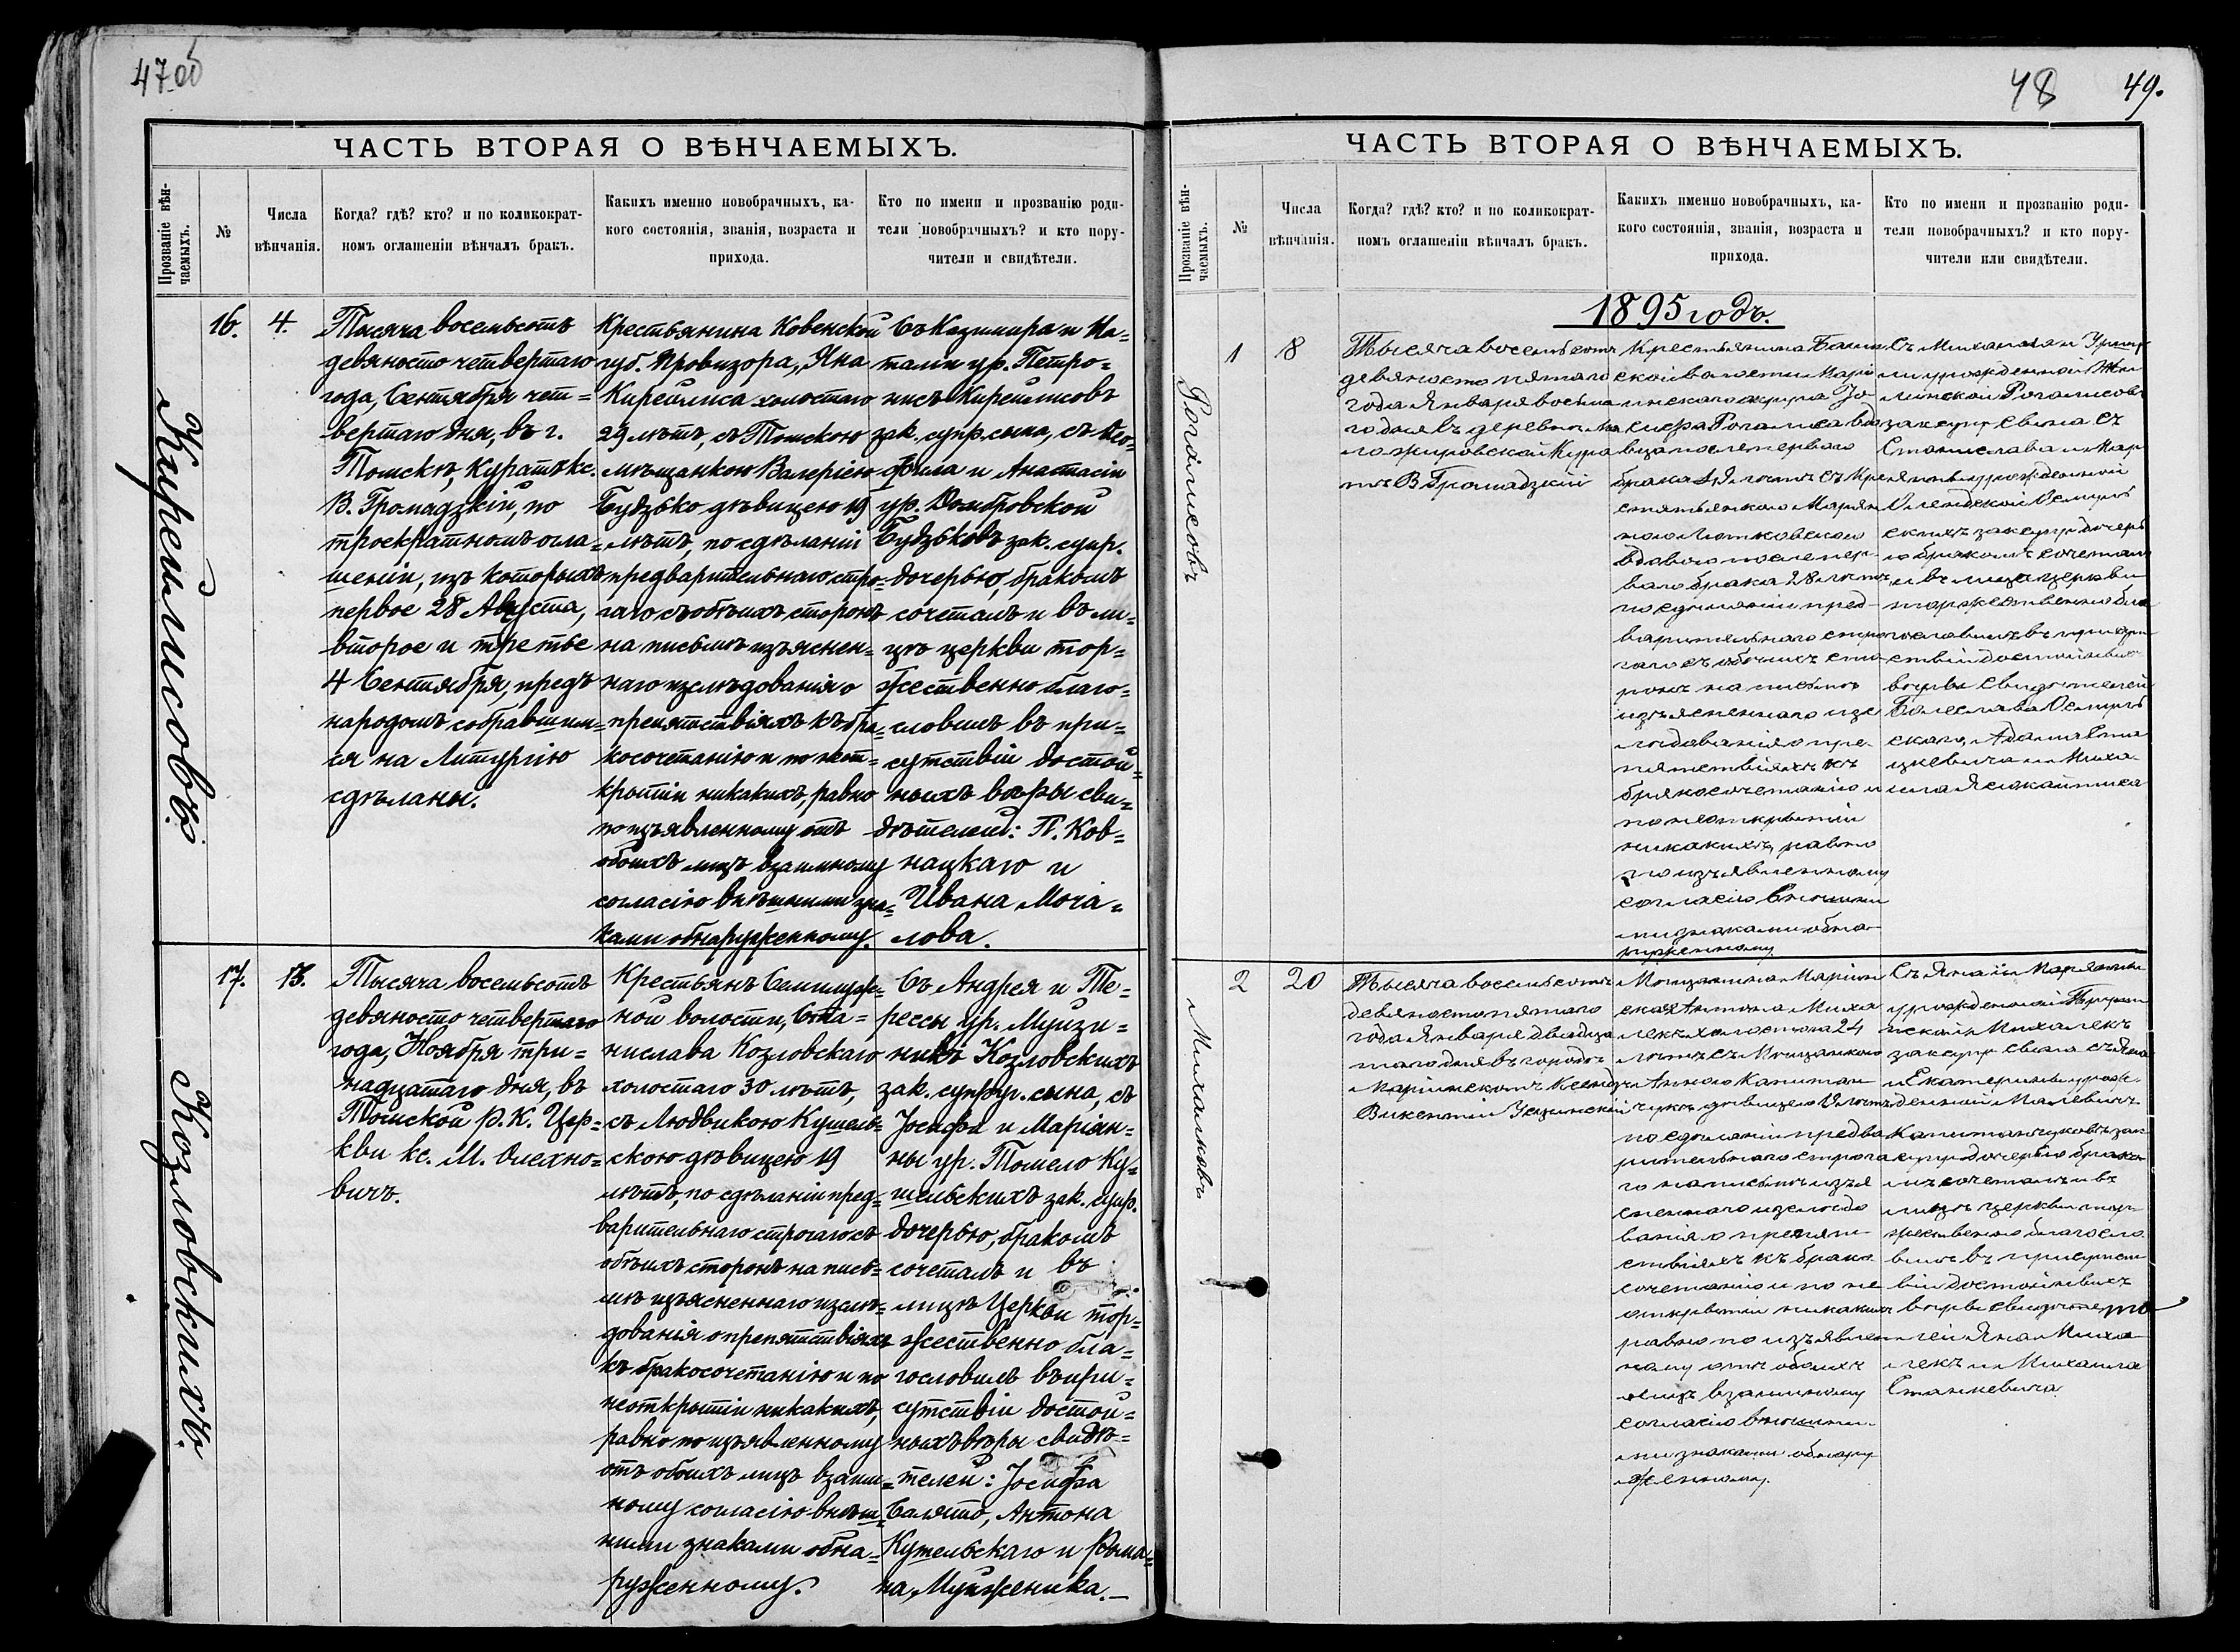 47 об
ЧАСТЬ ВТОРАЯ О ВѢНЧАЕМЫХЪ.
Прозваніе вѣн-
чаемыхъ.
№
Числа
вѣнчанія.
Когда? гдѣ? кто? и по коликократ-
номъ оглашеніи вѣнчалъ бракъ.
Какихъ именно новобрачныхъ, ка-
кого состоянія, званія, возраста и
прихода.
Кто по имени и прозванію роди-
тели новобрачныхъ? и кто пору-
чители и свидѣтели.
Кирейлисовъ.
16.
4.
Тысяча восемьсотъ
девяносто четвертаго
года, Сентября чет=
вертаго дня, въ г.
Томскѣ, Куратъ кс.
В. Громадзкій, по
троекратномъ огла=
шеніи, изъ которыхъ
первое 28 Августа,
второе и третье
4 Сентября, предъ
народомъ собравшим=
ся на Литургію
сдѣланы.
Крестьянина Ковенской
губ. Провизора, Яна
Кирейлиса холостаго
29 лѣтъ, съ Томскою
мѣщанкою Валеріею
Будзько дѣвицею 19
лѣтъ, по сдѣланіи
предварительнаго стро=
гаго съ обѣихъ сторонъ
на письмѣ изъяснен=
наго изслѣдованія о
препятствіяхъ къ бра=
косочетанію и по неот=
крытіи никакихъ, равно
по изъявленному отъ
обоихъ лицъ взаимному
согласію внѣшними зна=
ками обнаруженному.
Съ Казимира и На=
таліи ур. Петро=
нисъ Кирейлисовъ
зак. супр. сына, съ Ѳео=
фила и Анастасіи
ур. Домбровской
Будзьковъ зак. супр.
дочерью, бракомъ
сочеталъ и въ ли=
цѣ церкви тор=
жественно благо=
словилъ въ при=
сутствіи достой=
ныхъ вѣры сви=
дѣтелей: П. Ков=
нацкаго и
Ивана Моча=
лова.
Козловскихъ.
17.
13.
Тысяча восемьсотъ
девяносто четвертаго
года, Ноября три=
надцатаго дня, въ
Томской Р. К. Цер=
кви кс. М. Олехно=
вичъ.
Крестьянъ Семилуж=
ной волости, Ста=
нислава Козловскаго
холостаго 30 лѣтъ,
съ Людвикою Кушель=
скою дѣвицею 19
лѣтъ, по сдѣланіи пред=
варительнаго строгаго съ
обѣихъ сторонъ на пись=
мѣ изъясненнаго изслѣ=
дованія о препятствіяхъ
къ бракосочетанію и по
неоткрытіи никакихъ,
равно по изъявленному
отъ обоихъ лицъ взаим=
ному согласію внѣш=
ними знаками обна=
руженному.
Съ Андрея и Те=
рессы ур. Муйзи=
никъ Козловскихъ
зак. супр. сына, съ
Іосифа и Маріян=
ны ур. Томело Ку=
шельскихъ зак. супр.
дочерью, бракомъ
сочеталъ и въ
лицѣ Церкви тор=
жественно бла=
гословилъ въ при=
сутствіи достой=
ныхъ вѣры свидѣ=
телей: Іосифа
Балято, Антона
Кушельскаго и Рома=
на Муйженика.—
48
49.
ЧАСТЬ ВТОРАЯ О ВѢНЧАЕМЫХЪ.
Прозваніе вѣн-
чаемыхъ.
№
Числа
вѣнчанія.
Когда? гдѣ? кто? и по коликократ-
номъ оглашеніи вѣнчалъ бракъ.
Какихъ именно новобрачныхъ, ка-
кого состоянія, званія, возраста и
прихода.
Кто по имени и прозванію роди-
тели новобрачныхъ? и кто пору-
чители или свидѣтели.
1895 годъ.
Рогалисовъ
1
8
Тысяча восемьсотъ
девяносто пятаго
года Января восьма
го дня въ деревнѣ Ма
ложировской Кура
тъ В Громадзкій
Крестьянина
ской волости Марі
инскаго округа Іо
сифа Рогалиса вдо
вца послѣ перваго
брака лѣтъ съ Кре
стьянкою Маріян
ною Лотковскою
вдовою послѣ пер-
ваго брака 28 лѣтъ
по сдѣланіи пред-
варительнаго стро
гаго съ обѣихъ сто
ронъ на письмѣ
изъясненнаго изс
лѣдованія о пре
пятствіяхъ къ
бракосочетанію и
по неоткрытіи
никакихъ, равно
по изъявленному
согласію внѣшни
ми знаками обна
руженному
Съ Михаила и
урожденной
Рогалисовъ
зак супр сына съ
Станислава и Мар
янны урожденной
зак супр дочерь
ю бракомъ сочеталъ
и въ лицѣ церкви
торжественно бла
гословилъ въ прису
ствіи достойныхъ
вѣры свидѣтелей
Болеслава
скаго, Адама
цкевича и Миха
ила
Михалковъ
2
20
Тысяча восемьсотъ
девяносто пятаго
года Января двадца
таго дня въ городѣ
Маріинскомъ Ксендзъ
Викентій
Мѣщанина Маріин
скаго Антона Миха
лекъ холостаго 24
лѣтъ съ Мѣщанкою
Анною Капитан
чукъ дѣвицею лѣтъ
по сдѣланіи предва
рительнаго строга
го на письмѣ изъя
сненнаго изслѣдо
ванія о препят
ствіяхъ къ брако
сочетанію и по не
открытіи никакихъ
равно по изъявлен
ному отъ обоихъ
лицъ взаимному
согласію внѣшни
ми знаками обнару
женному.
Съ Яна и Маріянны
урожденной
Михалекъ
зак супр сына съ Яна
и Екатерины урож
денной Малевичъ
Капитанчуковъ зак
супр дочерью брако
мъ сочеталъ и въ
лицѣ церкви тор
жественно благосло
вилъ въ присутст
віи достойныхъ
вѣры свидѣте
лей Яна Миха
лекъ и Михаила
Станкевича